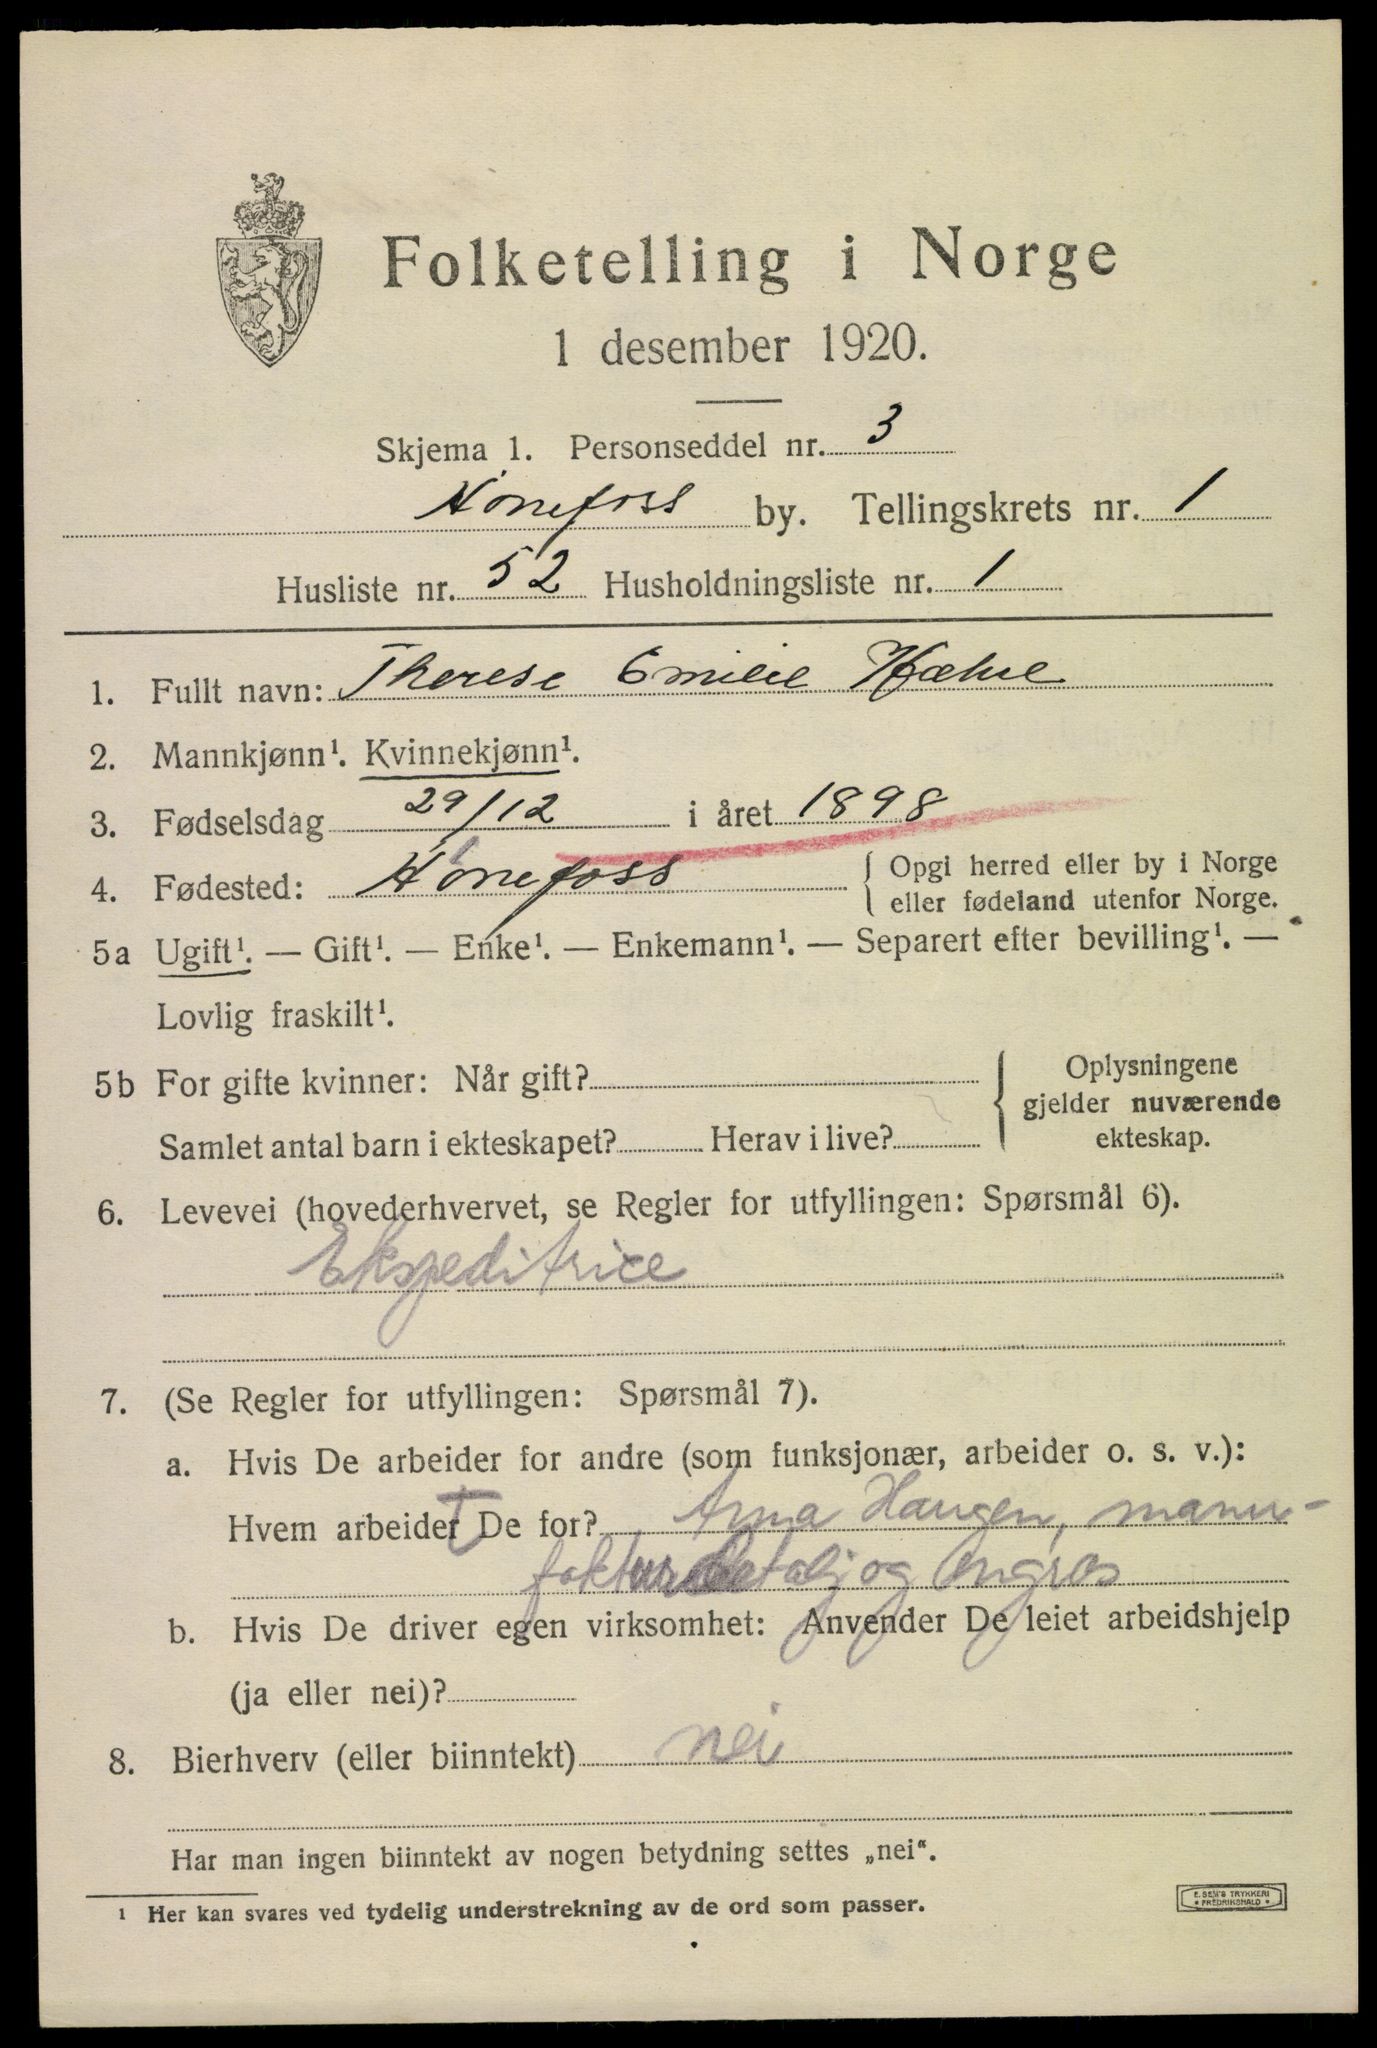 Folketelling i Norge
1 desember 1920.
Skjema 1. Personseddel nr. 3
Hönefoss by. Tellingskrets nr. 1
Husliste nr. 52 Husholdningsliste nr. 1
1. Fullt navn: Therese Emilie
2. Mannkjønn¹. Kvinnekjønn¹.
3. Fødselsdag 29/12 i året 1898
4. Fødested: Hönefoss { Opgi herred eller by i Norge
eller fødeland utenfor Norge.
5a Ugift¹. — Gift¹. — Enke¹. — Enkemann¹. — Separert efter bevilling¹. —
Lovlig fraskilt¹.
5b For gifte kvinner: Når gift? { Oplysningene
gjelder nuværende
Samlet antal barn i ekteskapet? Herav i live? ekteskap.
6. Levevei (hovederhvervet, se Regler for utfyllingen: Spørsmål 6).
Ekspeditrice
7. (Se Regler for utfyllingen: Spørsmål 7).
a. Hvis De arbeider for andre (som funksjonær, arbeider o. s. v.):
Hvem arbeider De for? Anna Haugen, manu-
faktur detalj og Engros
b. Hvis De driver egen virksomhet: Anvender De leiet arbeidshjelp
(ja eller nei)?
8. Bierhverv (eller biinntekt) nei
Har man ingen biinntekt av nogen betydning settes „nei“.
1 Her kan svares ved tydelig understrekning av de ord som passer.
E. SEM'S TRYKKERI
• FREDRIKSHALD •